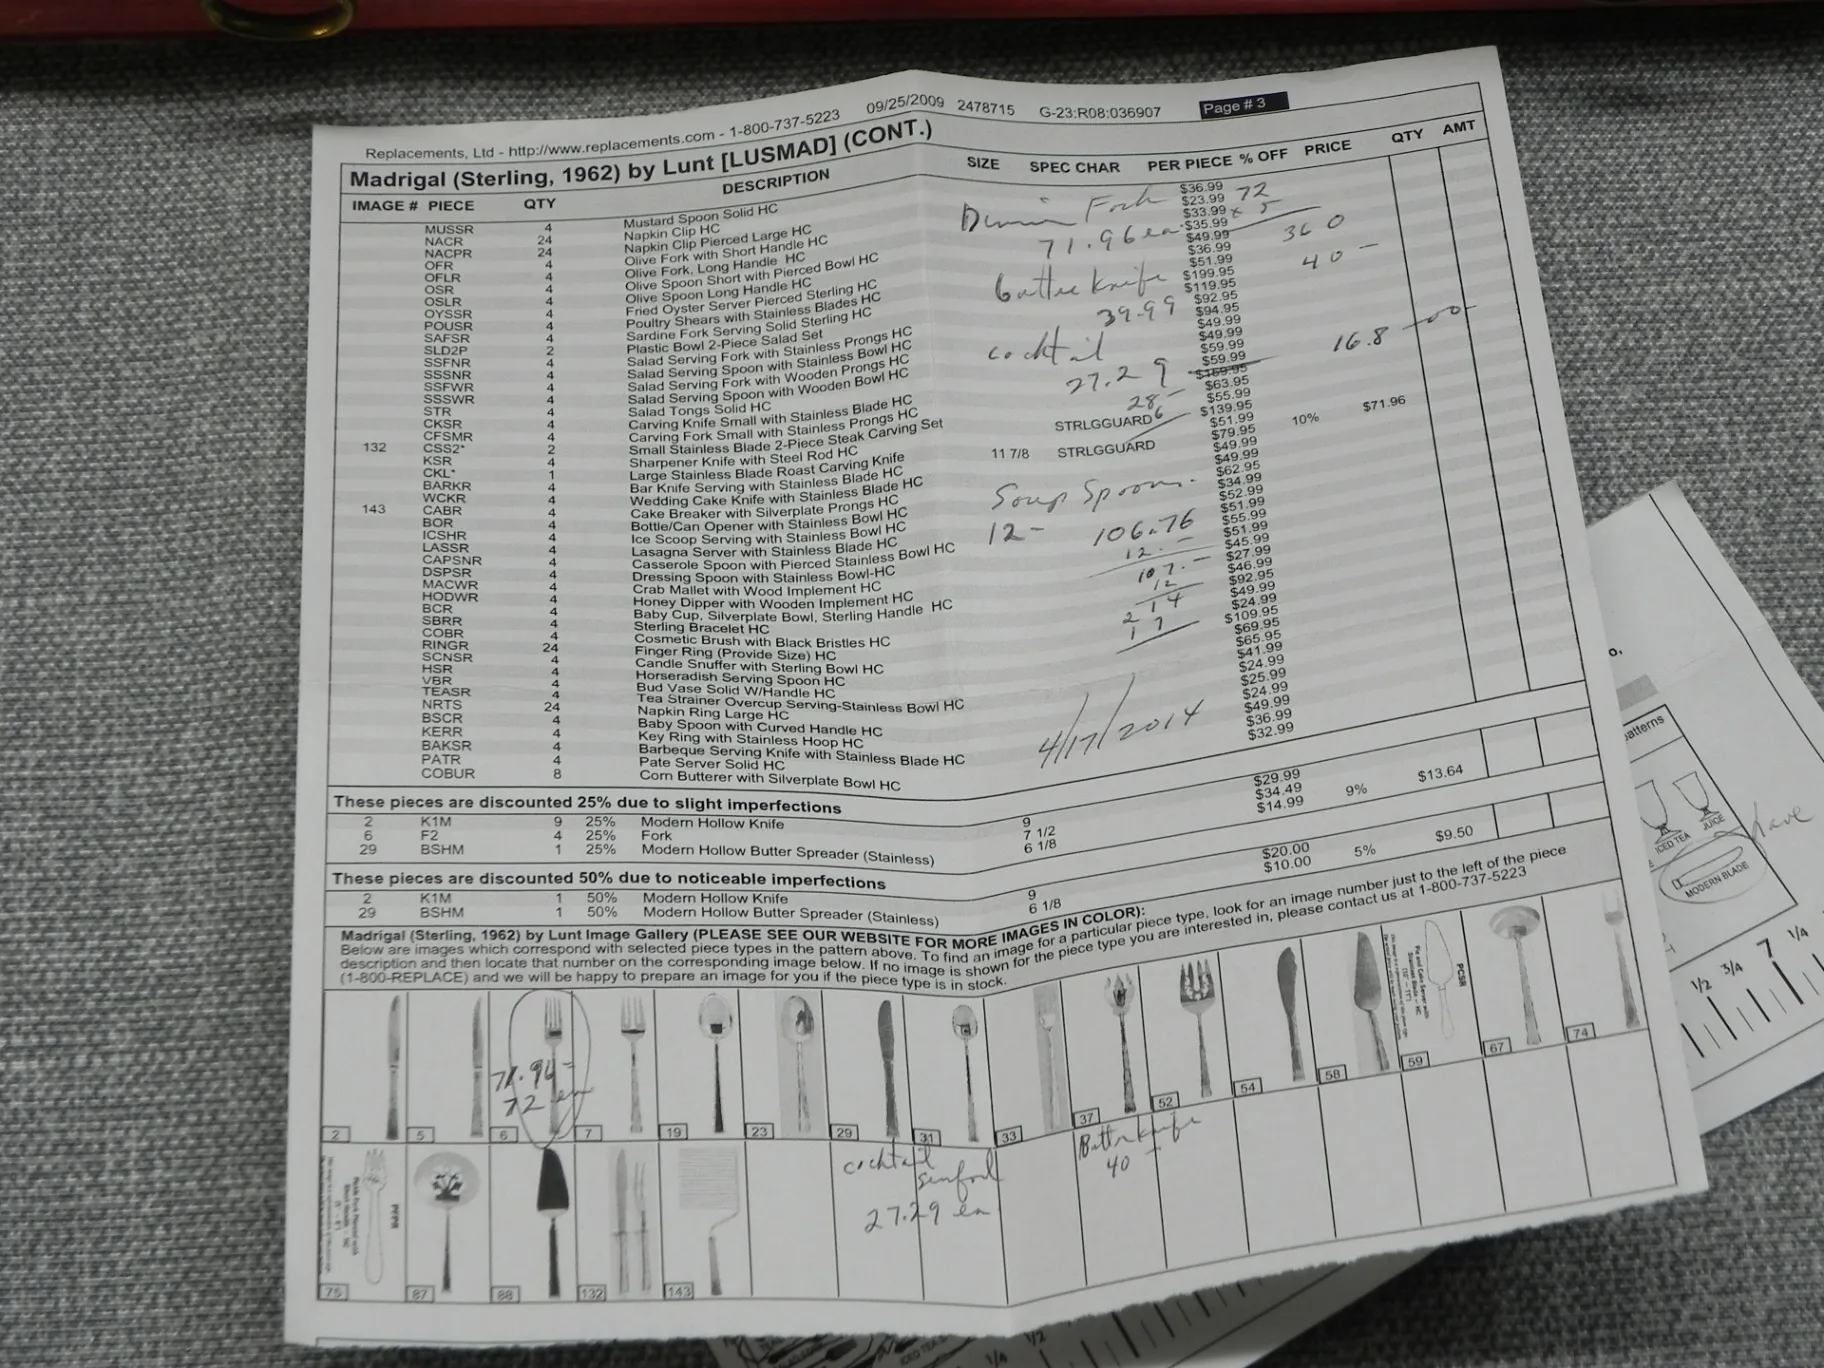 Replacements, Ltd - http://www.replacements.com - 1-800-737-5223 09/25/2009 2478715 G-23:R08:036907 Page # 3
Madrigal (Sterling, 1962) by Lunt [LUSMAD] (CONT.)
IMAGE # PIECE QTY DESCRIPTION SIZE SPEC CHAR PER PIECE % OFF PRICE QTY AMT
MUSSR 4 Mustard Spoon Solid HC $36.99
NACR 24 Napkin Clip HC $23.99
NACPR 24 Napkin Clip Pierced Large HC $33.99
OFR 4 Olive Fork with Short Handle HC $35.99
OFLR 4 Olive Fork, Long Handle HC $49.99
OSR 4 Olive Spoon Short with Pierced Bowl HC $36.99
OSLR 4 Olive Spoon Long Handle HC $51.99
OYSSR 4 Fried Oyster Server Pierced Sterling HC $199.95
POUSR 4 Poultry Shears with Stainless Blades HC $119.95
SAFSR 4 Sardine Fork Serving Solid Sterling HC $92.95
SLD2P 2 Plastic Bowl 2-Piece Salad Set $94.95
SSFNR 4 Salad Serving Fork with Stainless Prongs HC $49.99
SSSNR 4 Salad Serving Spoon with Stainless Bowl HC $49.99
SSFWR 4 Salad Serving Fork with Wooden Prongs HC $59.99
SSSWR 4 Salad Serving Spoon with Wooden Bowl HC $59.99
STR 4 Salad Tongs Solid HC $169.95
CKSR 4 Carving Knife Small with Stainless Blade HC $63.95
CFSMR 4 Carving Fork Small with Stainless Prongs HC $55.99
132 CSS2* 2 Small Stainless Blade 2-Piece Steak Carving Set STRLGGUARD $139.95
KSR 4 Sharpener Knife with Steel Rod HC $51.99
CKL* 1 Large Stainless Blade Roast Carving Knife 11 7/8 STRLGGUARD $79.95 10% $71.96
BARKR 4 Bar Knife Serving with Stainless Blade HC $49.99
WCKR 4 Wedding Cake Knife with Stainless Blade HC $49.99
143 CABR 4 Cake Breaker with Silverplate Prongs HC $62.95
BOR 4 Bottle/Can Opener with Stainless Bowl HC $34.99
ICSHR 4 Ice Scoop Serving with Stainless Bowl HC $52.99
LASSR 4 Lasagna Server with Stainless Blade HC $51.99
CAPSNR 4 Casserole Spoon with Pierced Stainless Bowl HC $55.99
DSPSR 4 Dressing Spoon with Stainless Bowl-HC $51.99
MACWR 4 Crab Mallet with Wood Implement HC $45.99
HODWR 4 Honey Dipper with Wooden Implement HC $27.99
BCR 4 Baby Cup, Silverplate Bowl, Sterling Handle HC $46.99
SBRR 4 Sterling Bracelet HC $92.95
COBR 4 Cosmetic Brush with Black Bristles HC $49.99
RINGR 24 Finger Ring (Provide Size) HC $24.99
SCNSR 4 Candle Snuffer with Sterling Bowl HC $109.95
HSR 4 Horseradish Serving Spoon HC $69.95
VBR 4 Bud Vase Solid W/Handle HC $65.95
TEASR 4 Tea Strainer Overcup Serving-Stainless Bowl HC $41.99
NRTS 24 Napkin Ring Large HC $24.99
BSCR 4 Baby Spoon with Curved Handle HC $25.99
KERR 4 Key Ring with Stainless Hoop HC $24.99
BAKSR 4 Barbeque Serving Knife with Stainless Blade HC $49.99
PATR 4 Pate Server Solid HC $36.99
COBUR 8 Corn Butterer with Silverplate Bowl HC $32.99
Dinnin Fork 72
x 5
71.96 ea. 360
butter knife 40 -
39.99
cocktail 16.8
27.29
28 -
6
Soup Spoons.
12 - 106.76
12. -
107. -
12
214
17
4/17/2014
These pieces are discounted 25% due to slight imperfections
2 K1M 9 25% Modern Hollow Knife 9 $29.99
6 F2 4 25% Fork 7 1/2 $34.49
29 BSHM 1 25% Modern Hollow Butter Spreader (Stainless) 6 1/8 $14.99 9% $13.64
These pieces are discounted 50% due to noticeable imperfections
2 K1M 1 50% Modern Hollow Knife 9 $20.00
29 BSHM 1 50% Modern Hollow Butter Spreader (Stainless) 6 1/8 $10.00 5% $9.50
Madrigal (Sterling, 1962) by Lunt Image Gallery (PLEASE SEE OUR WEBSITE FOR MORE IMAGES IN COLOR):
Below are images which correspond with selected piece types in the pattern above. To find an image for a particular piece type, look for an image number just to the left of the piece
description and then locate that number on the corresponding image below. If no image is shown for the piece type you are interested in, please contact us at 1-800-737-5223
(1-800-REPLACE) and we will be happy to prepare an image for you if the piece type is in stock.
71.96 -
72 en
Pie and Cake Server with
Stainless Blade - HC
PCSR
2 5 6 7 19 23 29 31 33 37 52 54 58 59 67 74
cocktail
seafood
27.29 en
Butter knife
40 -
PFPR
75 87 88 132 143
patterns
ICED TEA
JUICE
have
MODERN BLADE
1/2 3/4 7 1/4
1/4 1/2
ICED TEA